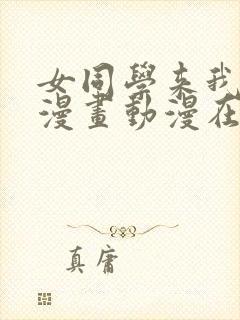 女同學來我
漫畫動漫在
真庸